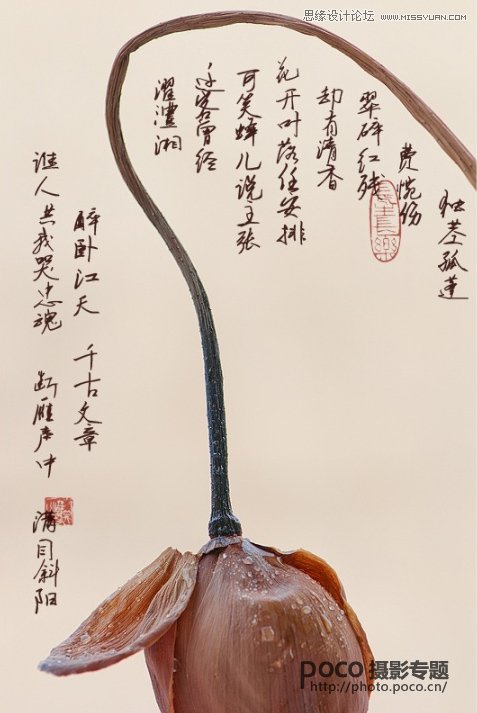 思缘设计论坛 WWW.MISSYUAN.COM
独茎孤莲
费悦伤
翠碎红残
却有清香
花开叶落任安排
可笑蝉儿说主张
迁客曾经
濯澧湘
醉卧江天 千古文章
谁人共我哭忠魂 断雁声中 满目斜阳
poco 摄影专题
http://photo.poco.cn/